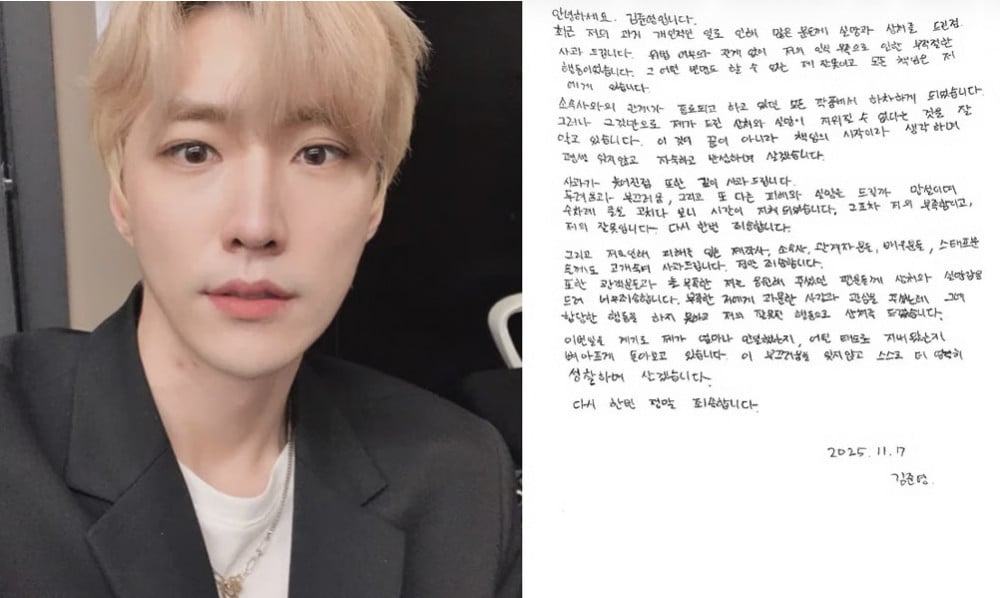 안녕하세요. 김준영입니다.
최근 저의 과거 개인적인 일로 인해 많은 분들께 실망과 상처를 드린점
사과 드립니다. 위법 여부와 관계 없이 저의 인식 부족으로 인한 부적절한
행동이었습니다. 그 어떤 변명도 할 수 없는 제 잘못이고 모든 책임은 저
에게 있습니다.
소속사와의 관계가 종료되고 하고 있던 모든 작품에서 하차하게 되었습니다.
그러나 그것만으로 제가 드린 상처와 실망이 지워질 수 없다는 것을 잘
알고 있습니다. 이 것이 끝이 아니라 책임의 시작이라 생각하며
평생 잊지않고 자숙하고 반성하며 살겠습니다.
사과가 늦어진점 또한 깊이 사과드립니다.
두려움과 부끄러움, 그리고 또 다른 피해와 실망을 드릴까 망설이며
수차례 글을 고치다 보니 시간이 지체 되었습니다. 그조차 저의 부족함이고,
저의 잘못입니다. 다시 한번 죄송합니다.
그리고 저로인해 피해를 입은 제작사, 소속사, 관계자분들, 배우분들, 스태프분
들께도 고개숙여 사과드립니다. 정말 죄송합니다.
또한 관객분들과 부족한 저를 응원해 주셨던 팬분들께 상처와 실망감을
드려 너무죄송합니다. 부족한 저에게 과분한 사랑과 관심을 주셨는데 그에
합당한 행동을 하지 못하고 저의 잘못된 행동으로 상처를 드렸습니다.
이번일을 계기로 제가 얼마나 안일했는지, 어떤 태도로 지내왔는지
뼈아프게 돌아보고 있습니다. 이 부끄러움을 잊지않고 스스로 더 엄격히
성찰하며 살겠습니다.
다시 한번 정말 죄송합니다.
2025. 11. 17
김준영.